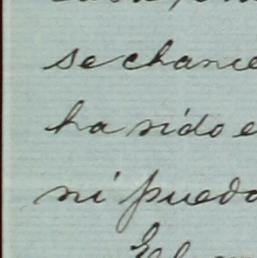 se chance
ha sido e
ni puedo
El